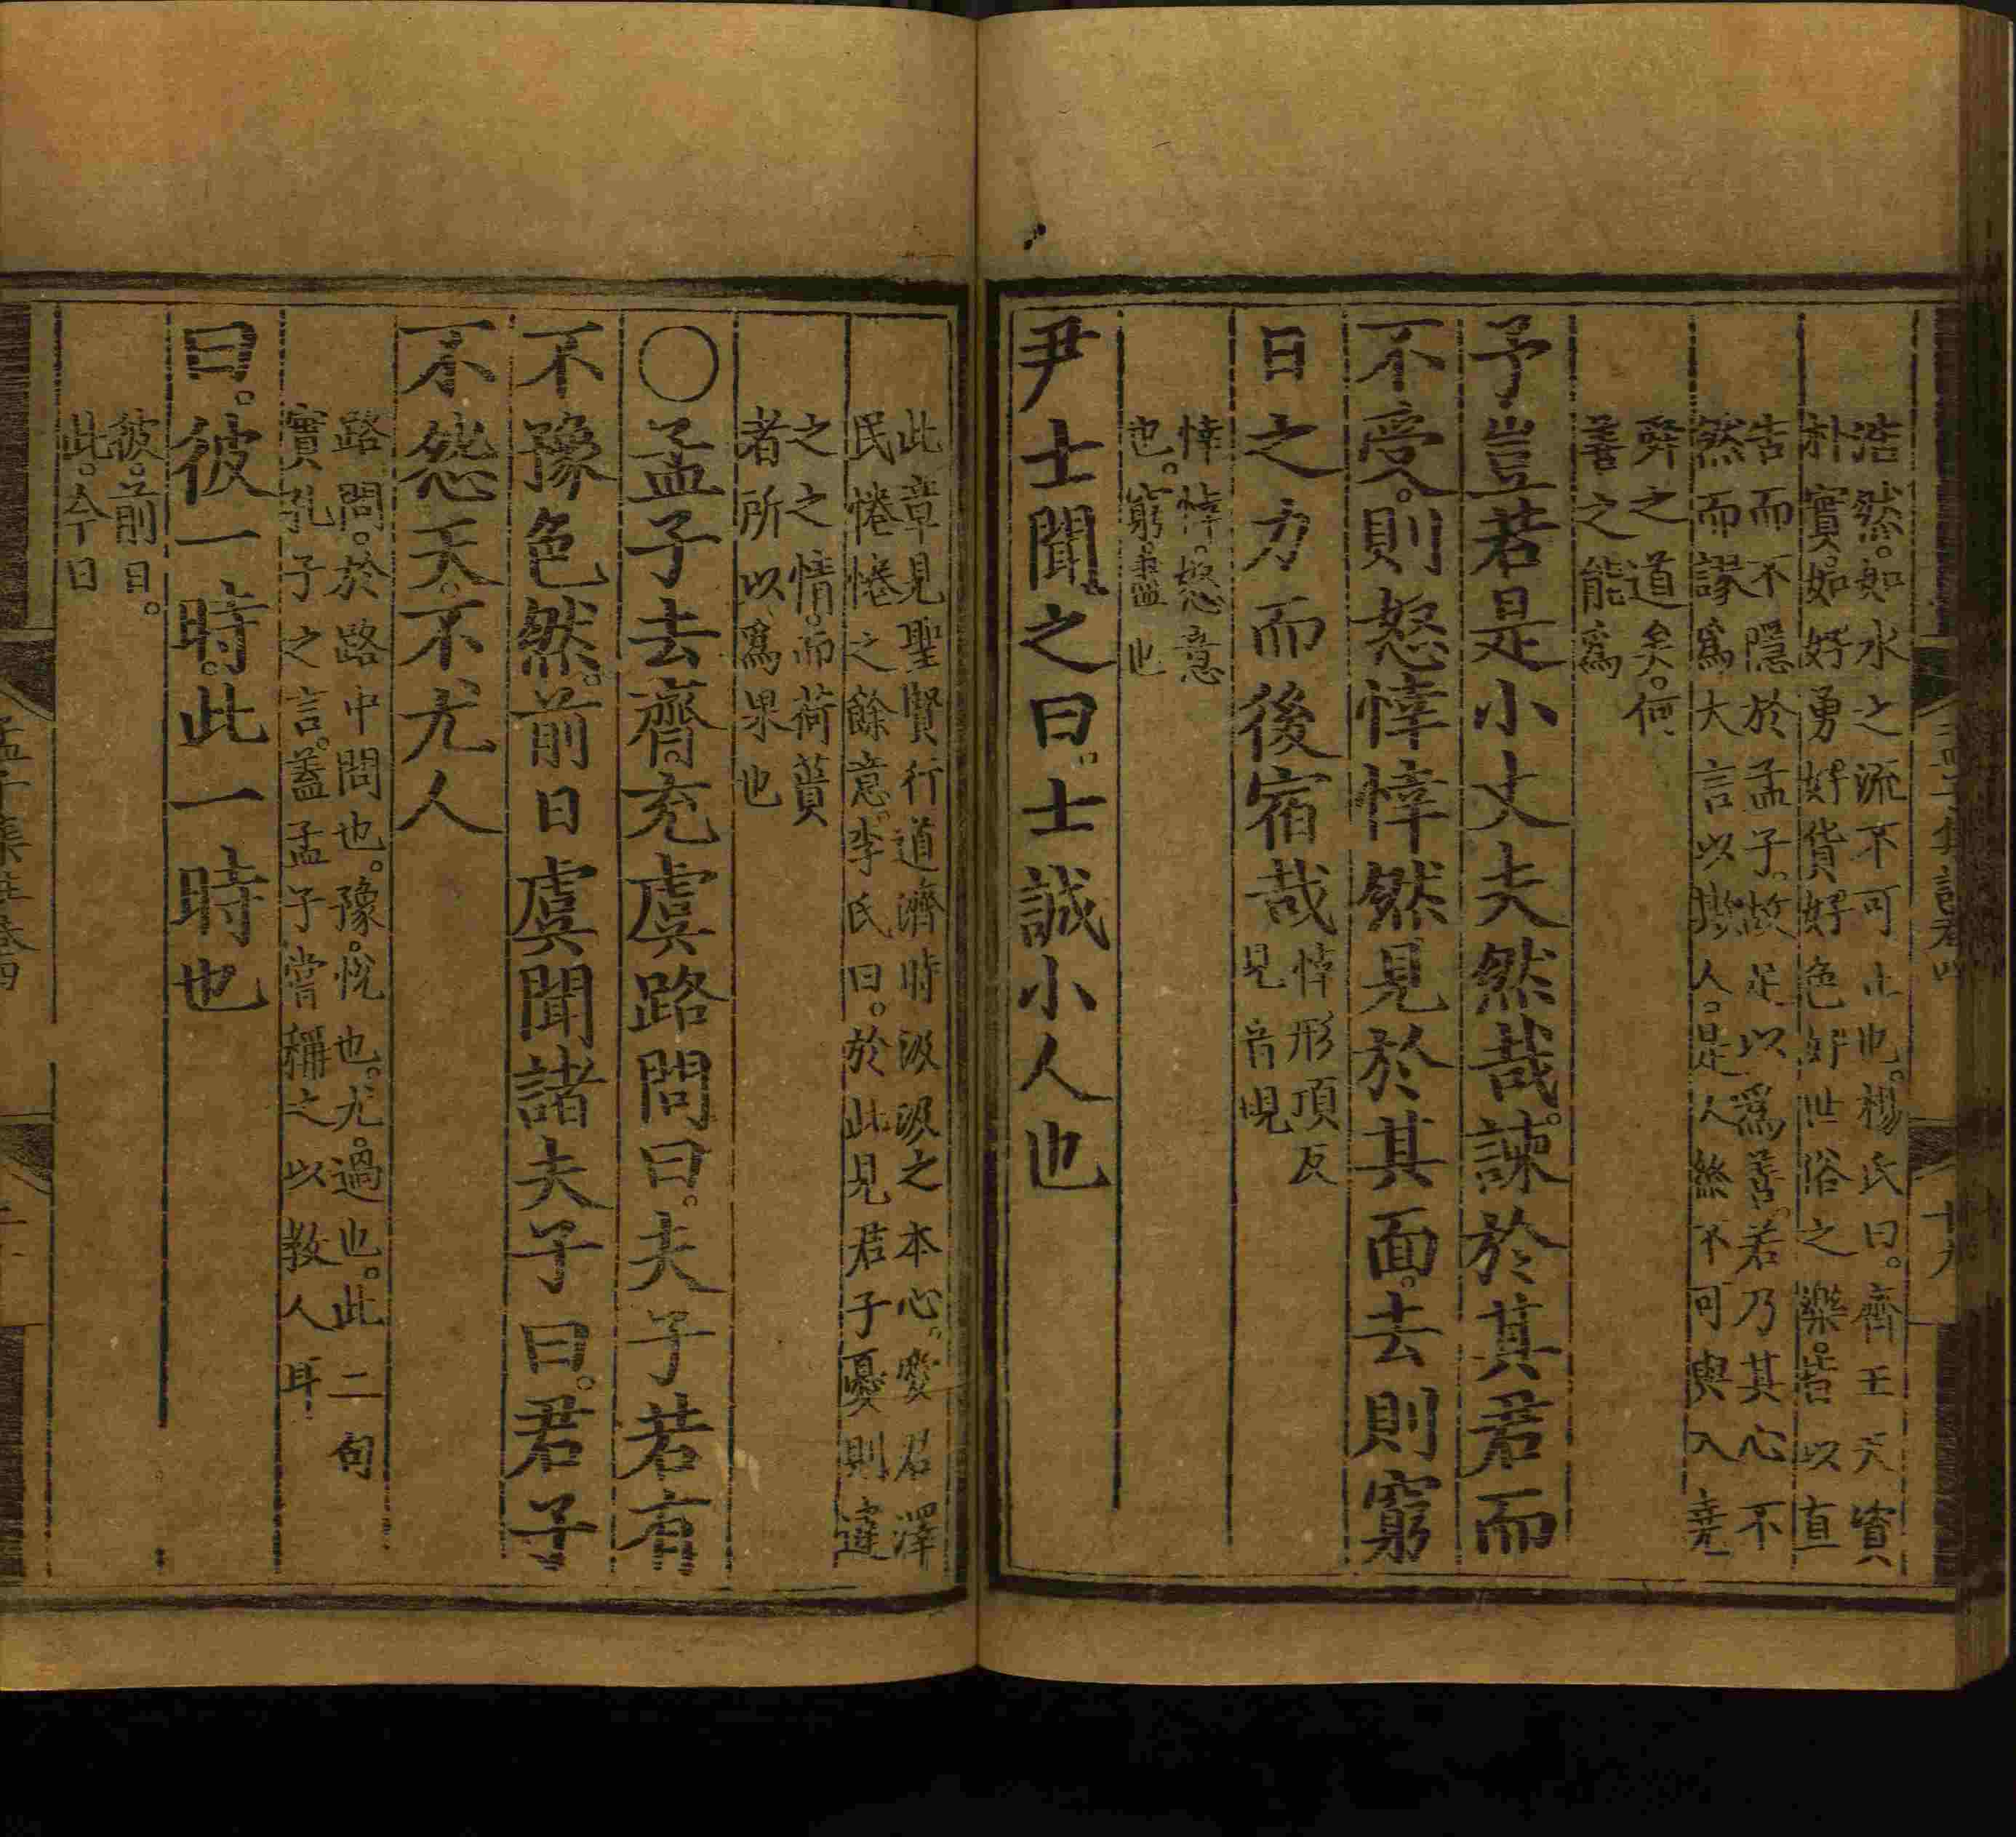 浩然。如水之流不可止也。楊氏曰。齊王天資
朴實。如好勇。好貨。好色。好世俗之樂。皆以直
告而不隱於孟子。故足以爲善。若乃其心不
然而謬爲大言以欺人。是人終不可與入堯
舜之道矣。何
善之能爲
予豈若是小丈夫然哉。諫於其君而
不受。則怒悻悻然見於其面。去則窮
日之力而後宿哉
悻形頂反
見音現
悻悻。怒意
也。窮。盡也
尹士聞之曰。士誠小人也
此章見聖賢行道濟時汲汲之本心。愛君澤
民惓惓之餘意。李氏曰。於此見君子憂則違
之之情。而荷蕢
者所以爲果也
〇孟子去齊。充虞路問曰。夫子若有
不豫色然。前日虞聞諸夫子曰。君子
不怨天。不尤人
路問。於路中問也。豫。悅也。尤。過也。此二句
實孔子之言。蓋孟子嘗稱之以教人耳
曰。彼一時。此一時也
彼。前日。
此。今日
孟子集註卷四